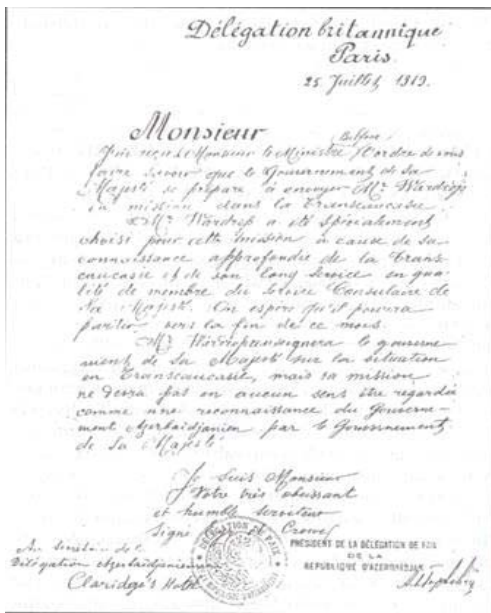 Délégation britannique
Paris
25 Juillet 1919.
Monsieur
Balfour
J'ai reçu de Monsieur le Ministre l'ordre de vous
faire savoir que le Gouvernement de Sa
Majesté se prépare à envoyer Mr. Wardrop
en mission dans la Transcaucasie.
Mr. Wardrop a été spécialement
choisi pour cette mission à cause de sa
connaissance approfondie de la Trans-
caucasie et de son long service en qua-
lité de membre du Service Consulaire de
Sa Majesté. On espère qu'il pourra
partir vers la fin de ce mois.
Mr. Wardrop renseignera le gouverne-
ment de Sa Majesté sur la situation
en Transcaucasie, mais sa mission
ne devra pas en aucun sens être regardée
comme une reconnaissance du Gouverne-
ment Azerbaidjanien par le Gouvernement
de Sa Majesté
Je suis Monsieur
Votre très obeissant
et humble serviteur
Signé Crowe
DÉLÉGATION DE PAIX
PRÉSIDENT DE LA DÉLÉGATION DE PAIX
DE LA
RÉPUBLIQUE D'AZERBAIDJAN
Délégation Azerbaidjanienne
Claridge's Hotel